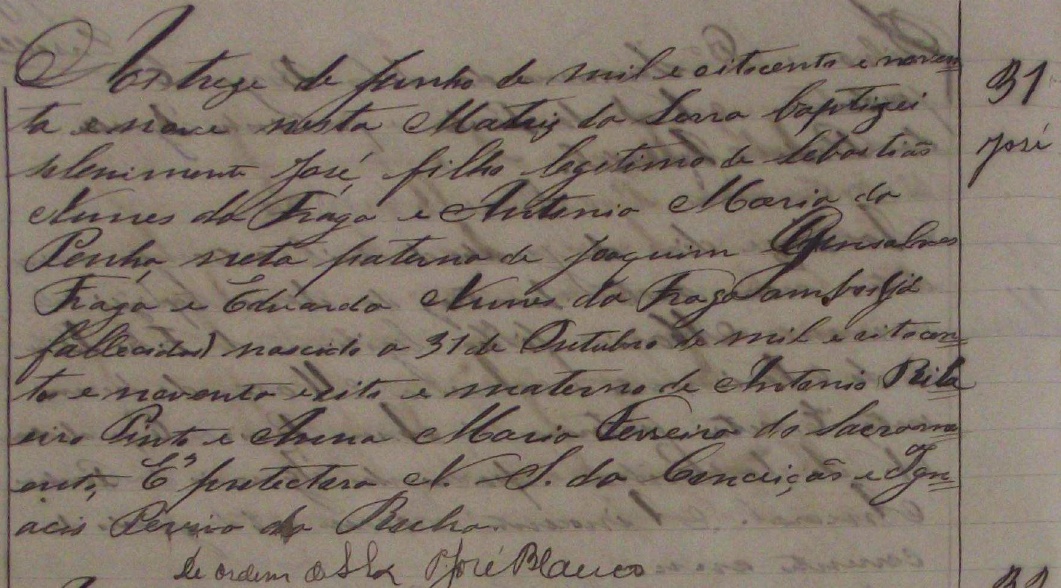 Aos treze de Junho de mil e oitocento e noven=
ta e nove nesta Matriz da Serra baptizei
slenimente José, filho legitimo de Sebastião
Nunes da Fraga e Antonia Maria da
Penha, neta paterna de Joaquim Gonsalves
Fraga e Eduarda Nunes da Fraga (ambos já
fallecidos) nascido a 31 de Outubro de mil e oitocen=
to e noventa e oito e materno de Antonio Rib=
eiro Pinto e Anna Maria Ferreira do Sacram=
ento, Eª protectora N. S. da Conceição e Ign=
acio Pereira da Rocha.
De ordem José Blanco
31
José